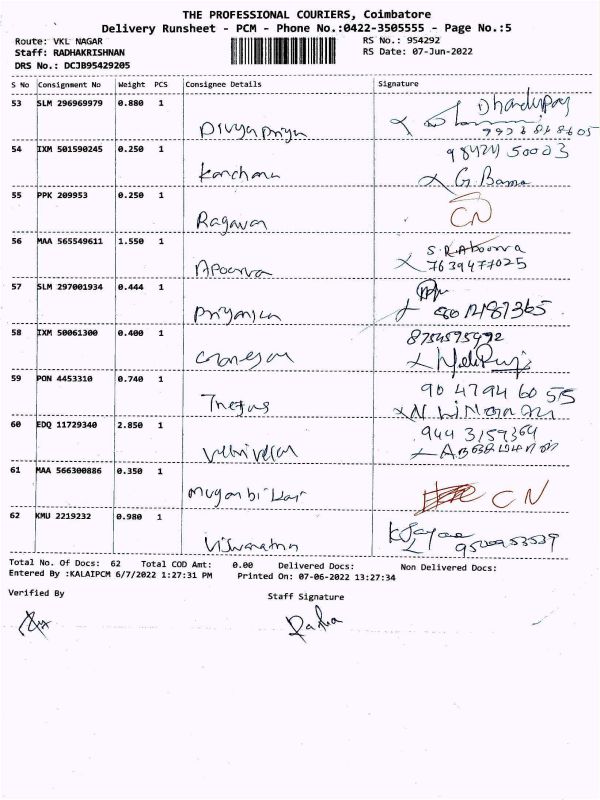 THE PROFESSIONAL COURIERS, Coimbatore
Delivery Runsheet - PCM - Phone No.:0422-3505555 - Page No.:5
Route: VKL NAGAR RS No.: 954292
Staff: RADHAKRISHNAN RS Date: 07-Jun-2022
DRS No.: DCJB95429205
S No Consignment No Weight PCS Consignee Details Signature
53 SLM 296969979 0.880 1
Divyapriya
54 IXM 501590245 0.250 1 98424 50003
Kanchana G. Bama
55 PPK 209953 0.250 1
Ragavan CN
56 MAA 565549611 1.550 1 S.R.Aboorva
Apoorva 7639477025
57 SLM 297001934 0.444 1
Priyanka
58 IXM 50061300 0.400 1 8754595492
59 PON 4453310 0.740 1 90 4794 60 55
60 EDQ 11729340 2.850 1 944 3159364
61 MAA 566300886 0.350 1
CN
62 KMU 2219232 0.980 1
Total No. Of Docs: 62 Total COD Amt: 0.00 Delivered Docs: Non Delivered Docs:
Entered By :KALAIPCM 6/7/2022 1:27:31 PM Printed On: 07-06-2022 13:27:34
Verified By Staff Signature
Radha